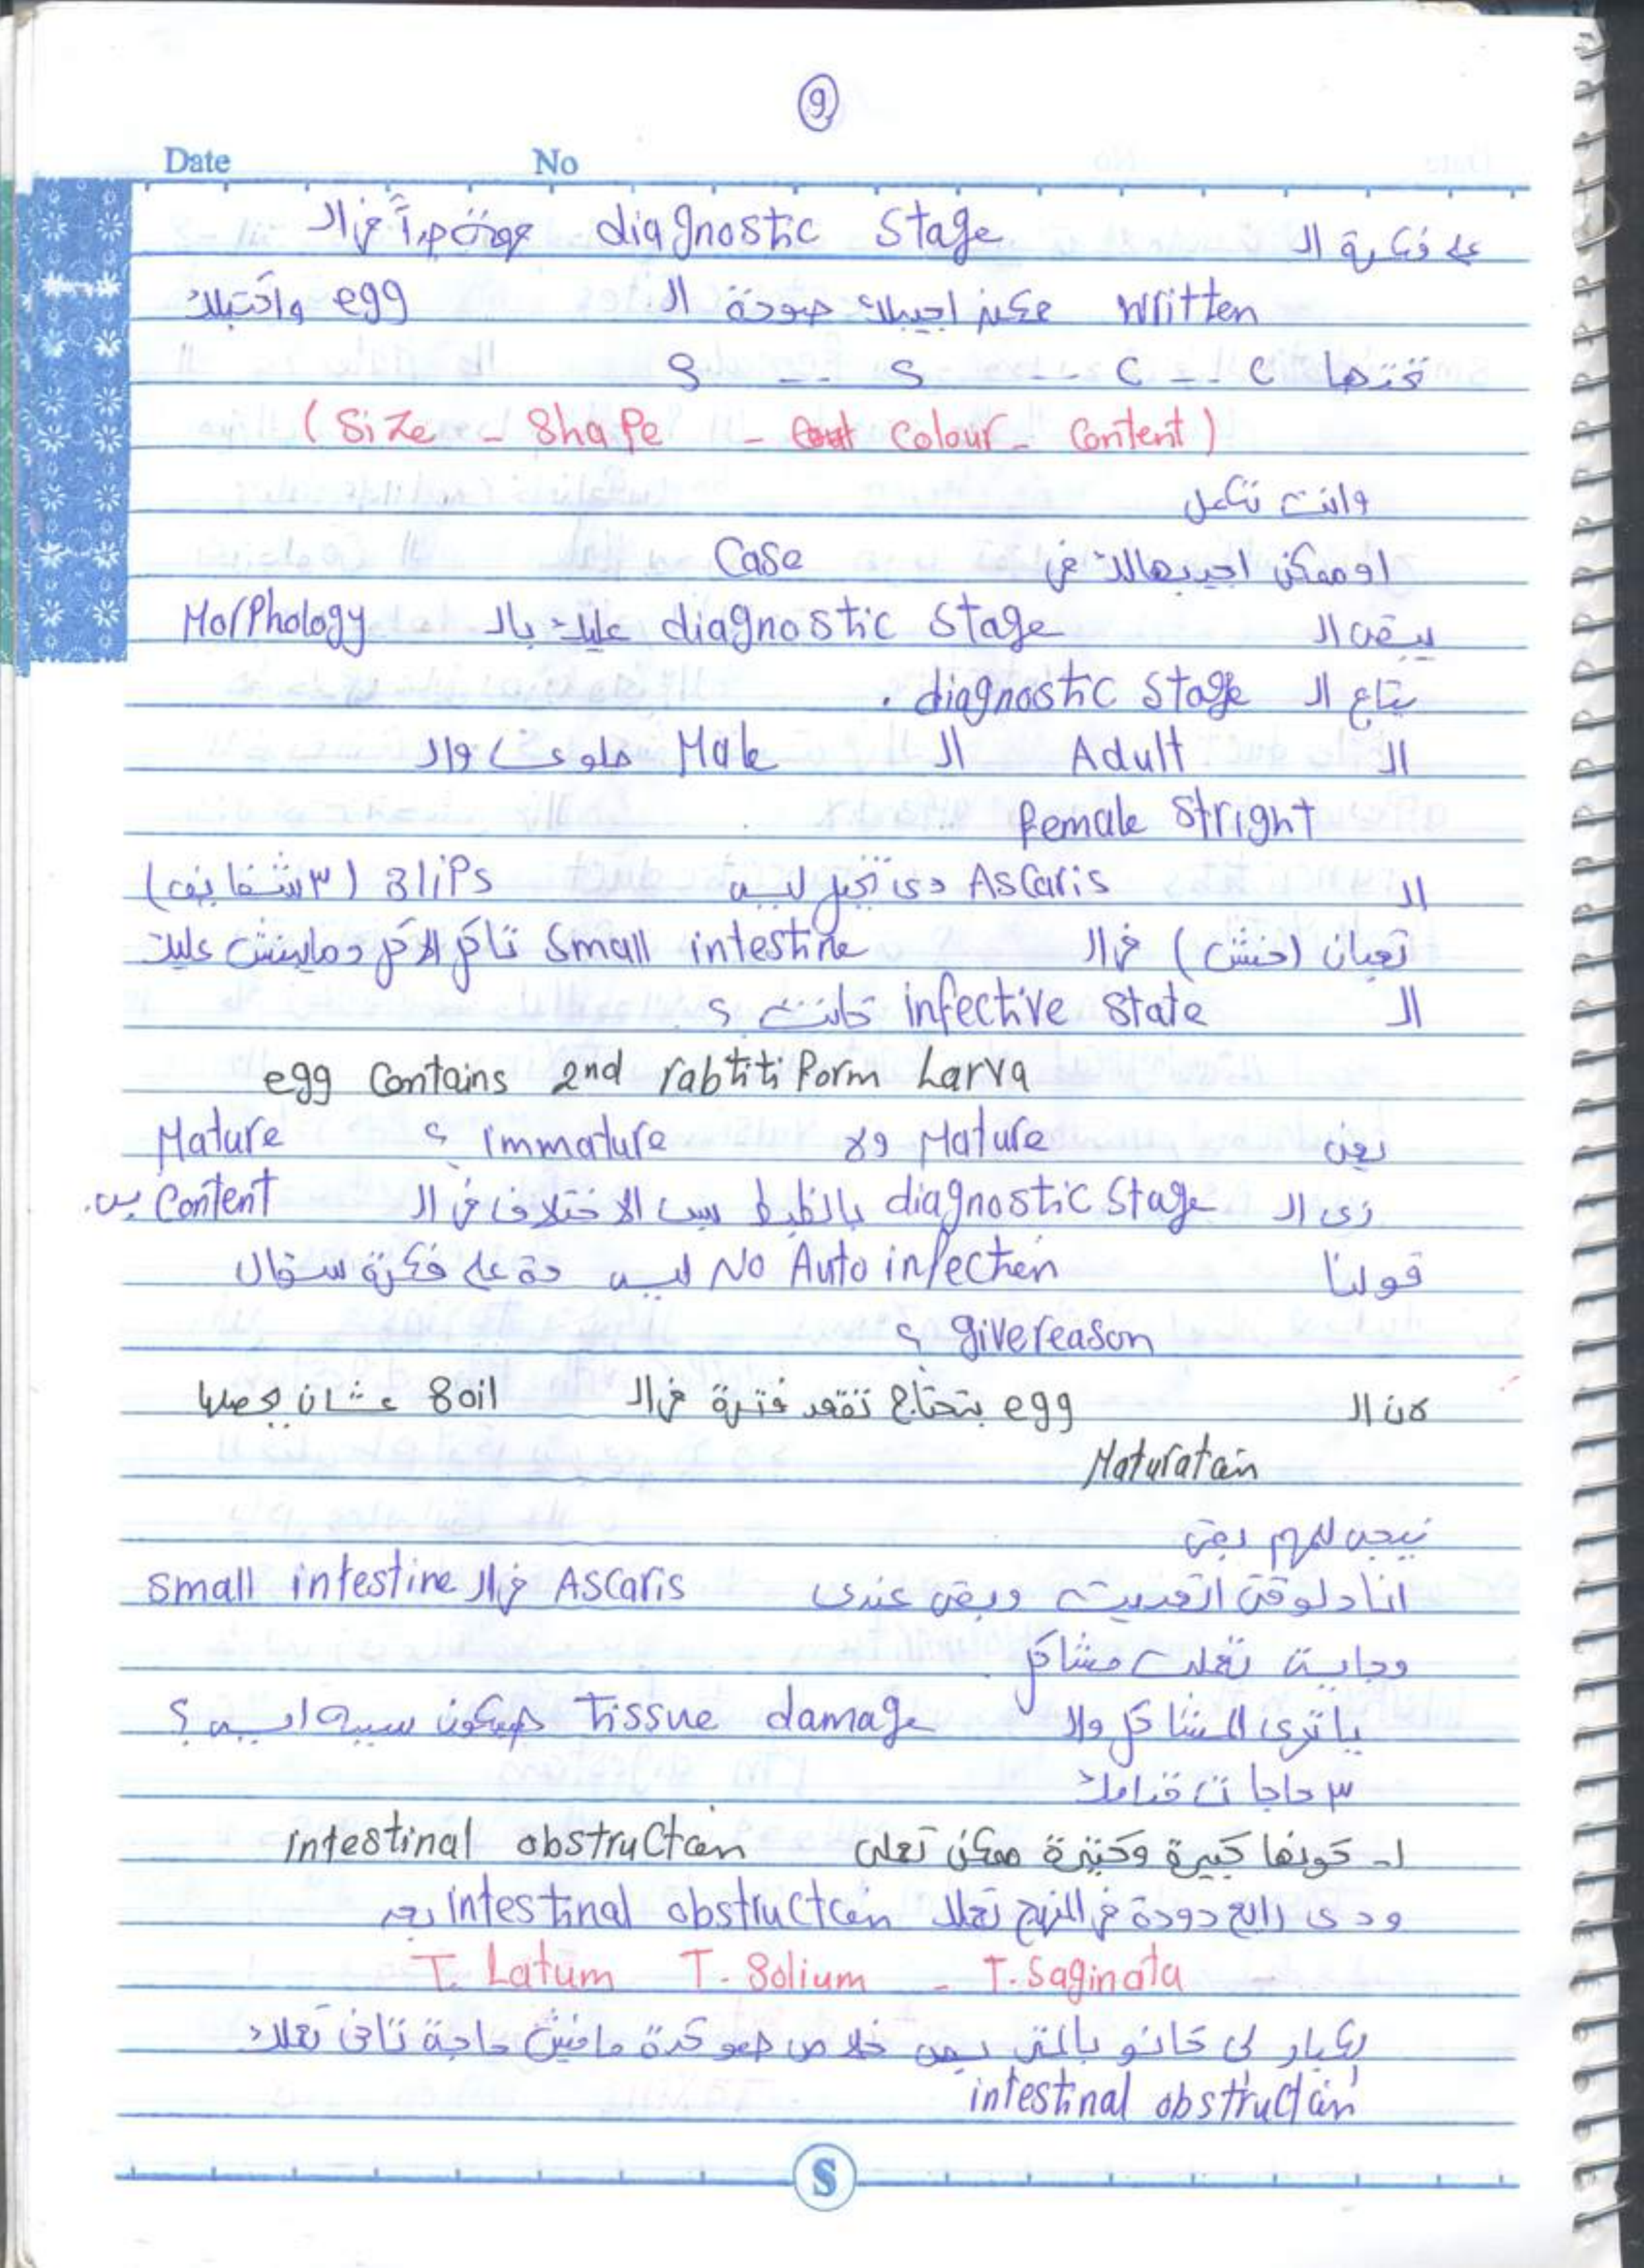 9
Date No
على فكرة الـ diagnostic stage مهمة جداً في الـ
written ممكن اجيبلك صورة الـ egg واكتبلك
تحتها C -- C --- S -- S
(Size - Shape - Colour - Content)
وانت تكمل
او ممكن اجيبهالك في Case
يبقى الـ diagnostic stage عليك بالـ Morphology
بتاع الـ diagnostic stage .
الـ Adult الـ Male ملوى والـ
female stright
الـ Ascaris دى تخيل ليه 3 lips (٣ شفايف)
تعبان (حنش) في الـ small intestine تاكل الاكل دمايينش عليك
الـ infective state كانت ؟
egg Contains 2nd rabtiti form Larva
يعنى Mature ولا immature ؟ Mature
زى الـ diagnostic stage بالظبط بس الاختلاف في الـ Content بس.
قولنا No Auto infection ليه دة على فكرة سؤال
give reason ؟
لان الـ egg بتحتاج تقعد فترة في الـ Soil عشان يحصلها
Maturatain
نيجى للمهم بقى
انا دلوقتى اتعديت وبقى عندى Ascaris في الـ small intestine
وجاية تعلب مشاكل .
ياترى المشاكل والـ tissue damage هيكون سببه ايه ؟
٣ حاجات قدامك
١- كونها كبيرة وكتيرة ممكن تعلى intestinal obstructan
ودى رابع دودة في المنهج تعملك intestinal obstructan بعد
T. Latum T. Solium - T. Saginata
الكبار لى كانو بالمتر بس خلاص هو كدة مافيش حاجة تانى تعملك
intestinal obstructan
S